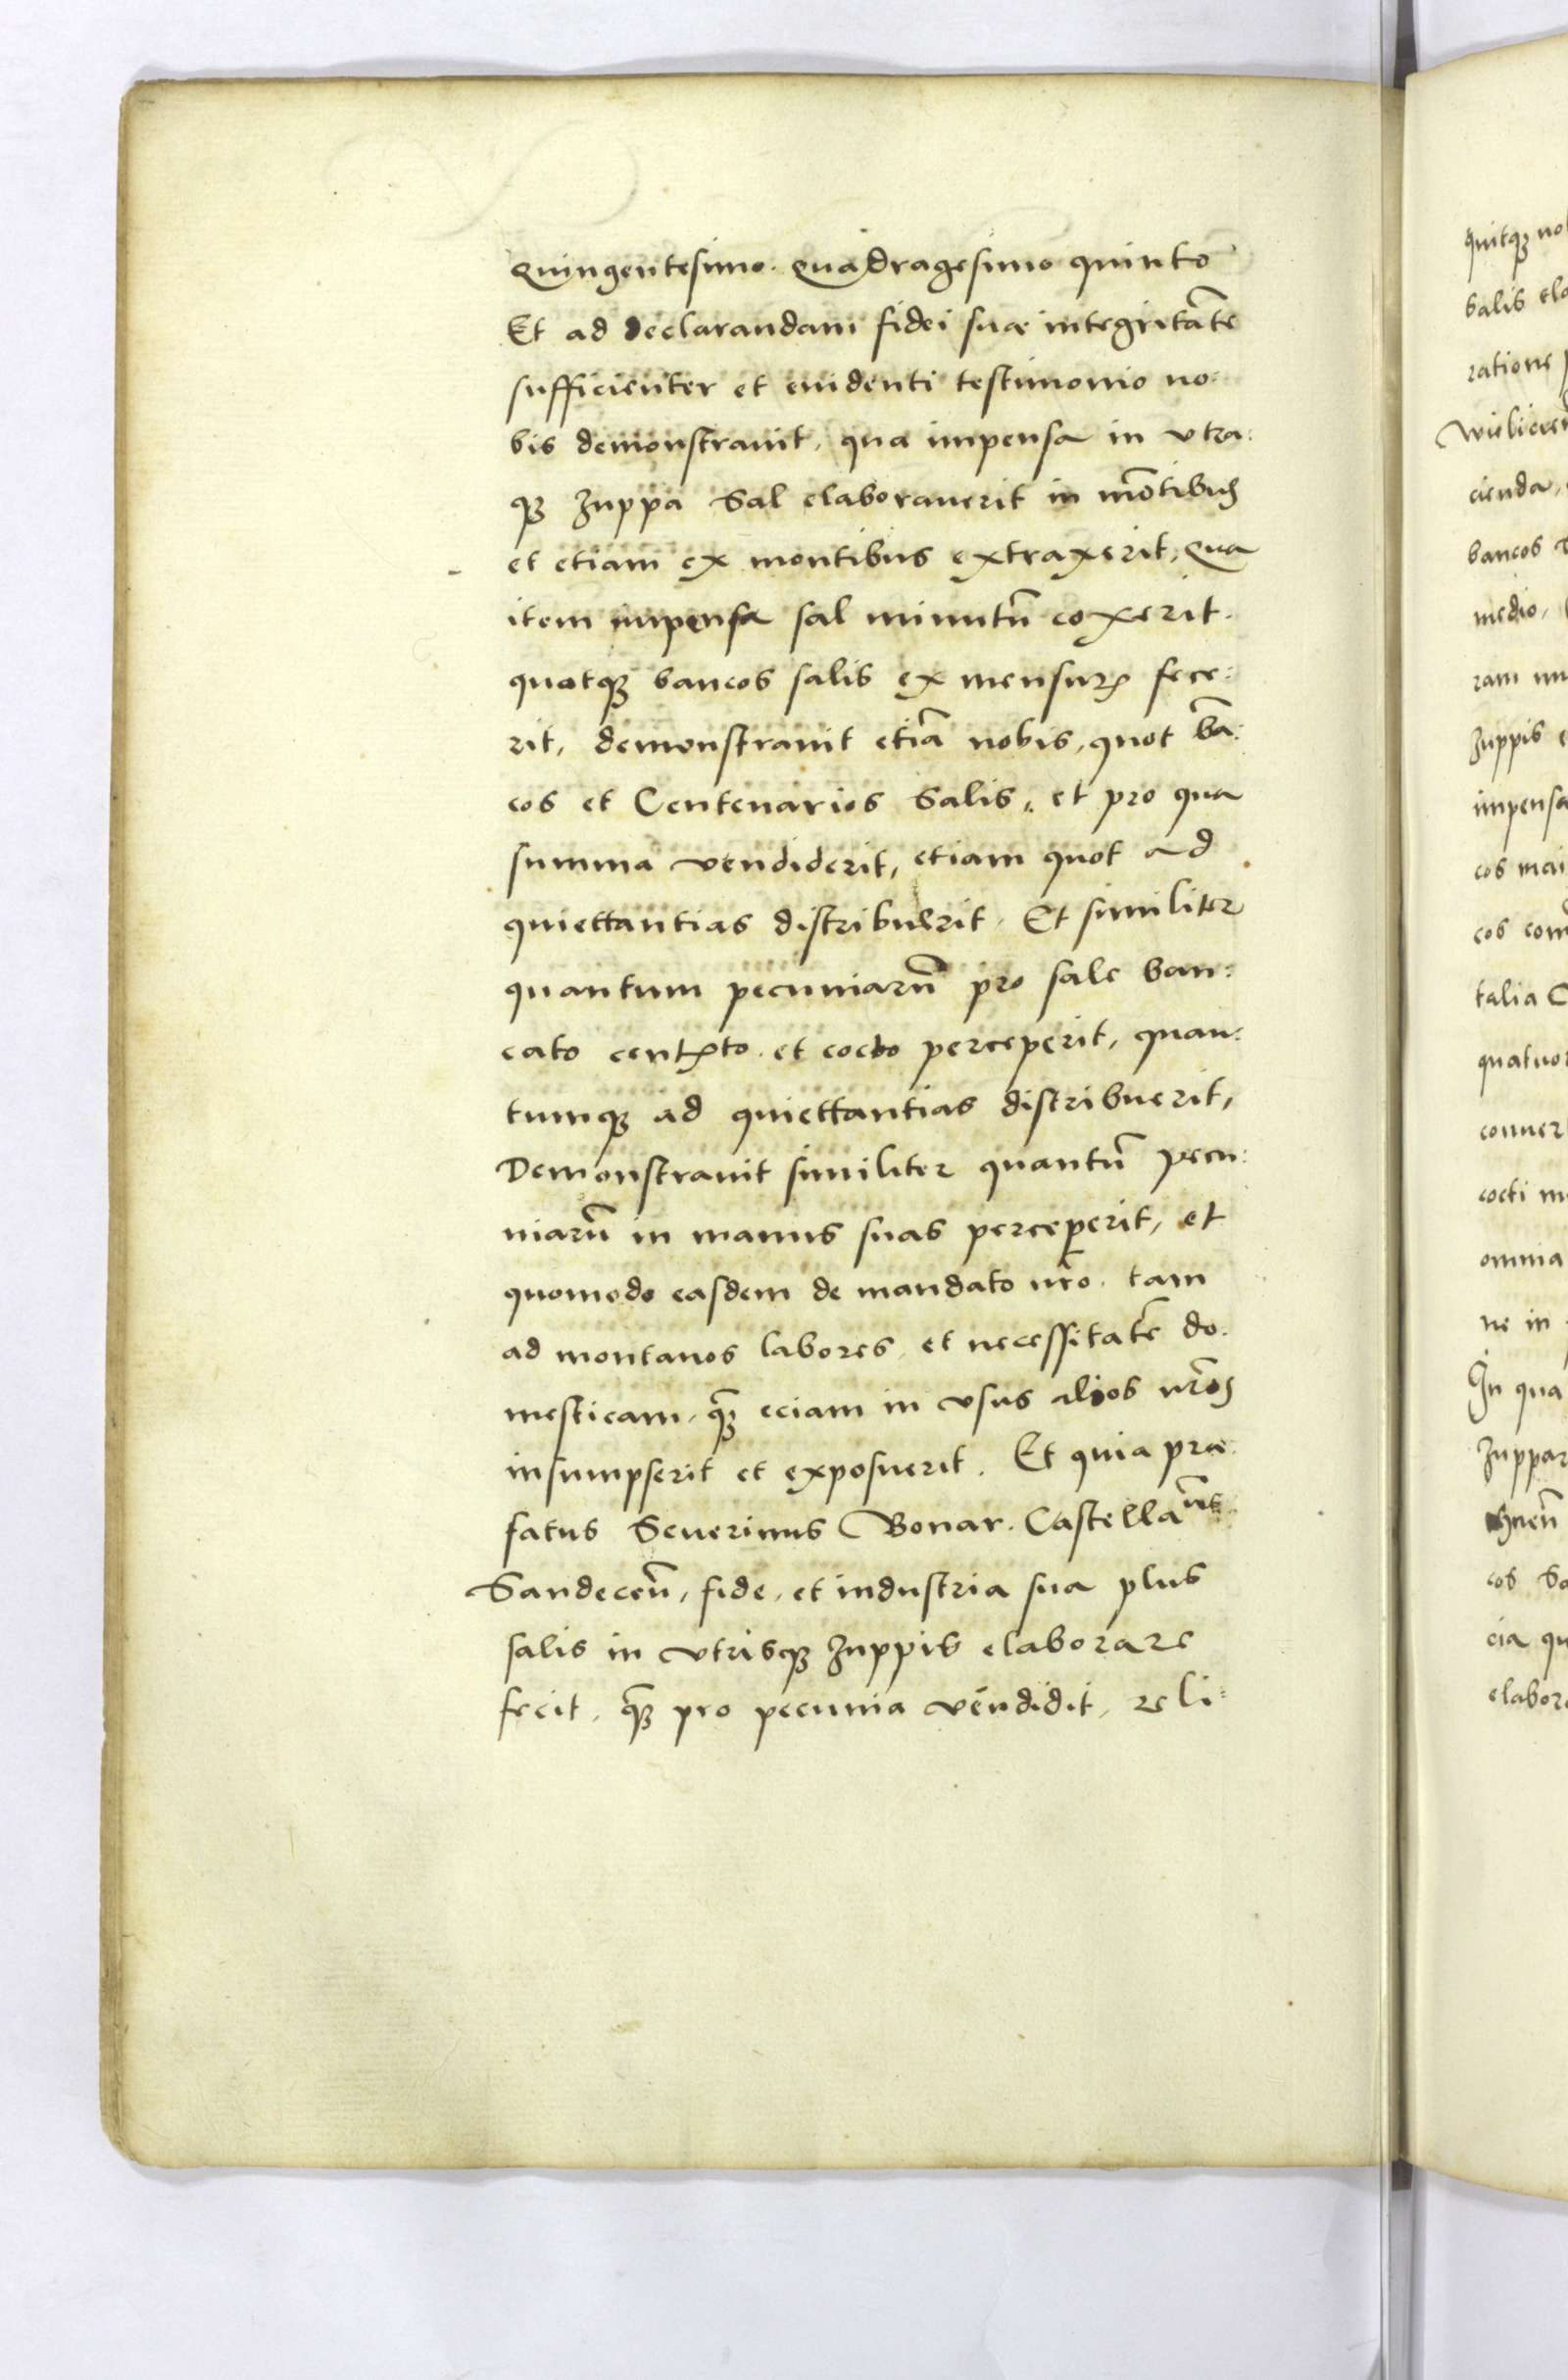 Quingentesimo. Quadragesimo quinto
Et ad declarandam fidei suæ integritatē
sufficienter et euidenti testimonio no:
bis demonstrauit, qua impensa in vtra:
qꝫ Zuppa Sal elaborauerit in mōtibus
et etiam ex montibus extraxerit, Qua
item impensa sal minutū coxerit.
quotqꝫ bancos salis ex mensuris fece:
rit, demonstrauit etiā nobis, quot bā:
cos et Centenarios Salis, et pro qua
summa vendiderit, etiam quot ad
quiettantias distribuerit. Et similiter
quantum pecuniarū pro sale ban:
cato et cocto perceperit, quan:
tumqꝫ ad quiettantias distribuerit,
Demonstrauit similiter quantū pecu:
niarū in manus suas perceperit, et
quomodo easdem de mandato nrō. tam
ad montanos labores, et necessitatē do:
mesticam, qꝫ̄ eciam in vsus alios nrōs
insumpserit et exposuerit. Et quia præ:
fatus Seuerinus Bonar. Castellanus
Sandeceñ, fide, et industria sua plus
salis in vtrisqꝫ Zuppis elaborare
fecit, qꝫ̄ pro pecunia vendidit, reli:
quitqꝫ
Salis
ratione
cienda,
bancos
medio,
ram
Zuppis
impensa
cos
cos
talia
cocti
omnia
ne in
In qua
cos
cia